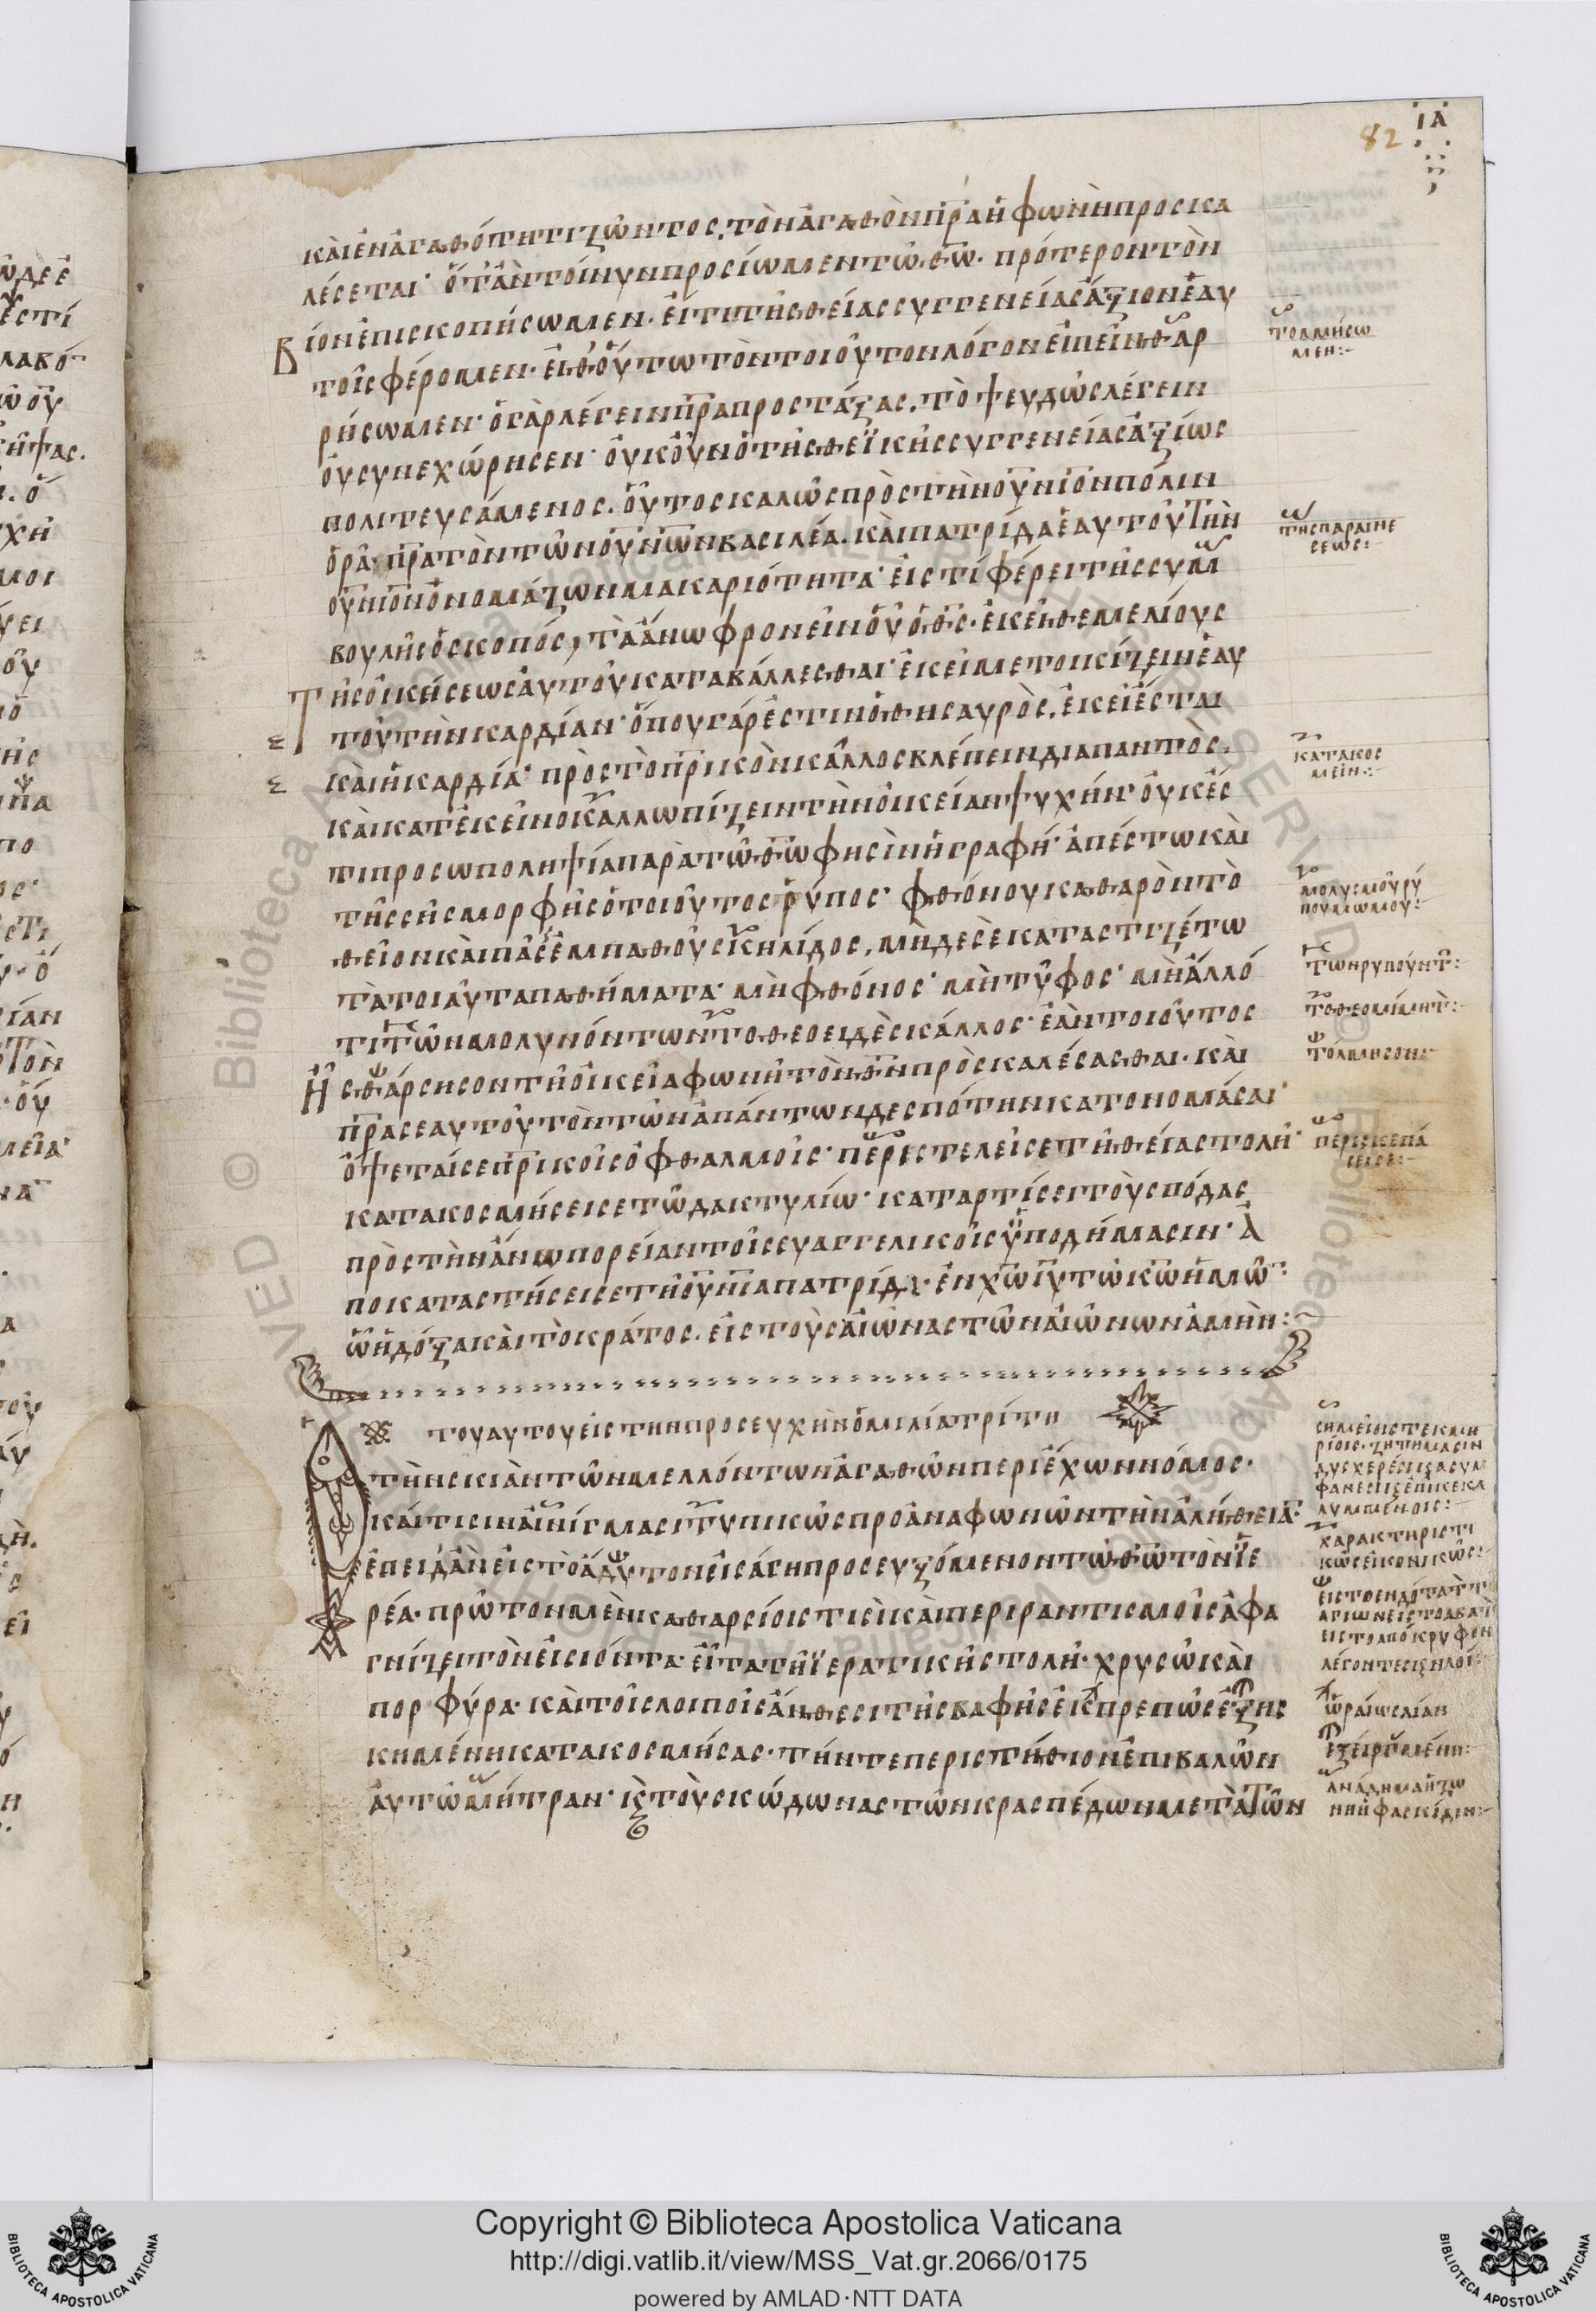 82 ΙΑ
καὶ ἐν ἀγαθότητι ζῶντος, τὸν ἀγαθὸν πρα ἡ φωνὴ προσκα
λέσεται· ὅταν τοίνυν προσίωμεν τῶ θω· πρότερον τὸν
βίον ἐπισκοπήσωμεν· εἴ τι τῆς θείας συγγενείας ἄξιον ἐν ἑαυ
τοῖς φέρομεν· εἶθ' οὕτω τὸν τοιοῦτον λόγον εἰπεῖν θαρ
ρήσωμεν· ὁ γὰρ λέγειν πρα προστάξας, τὸ ψευδῶς λέγειν
οὐ συνεχώρησεν· οὐκοῦν ὁ τῆς θεϊκῆς συγγενείας ἀξίως
πολιτευσάμενος. οὗτος καλῶς πρὸς τὴν οὐνιον πόλιν
ὁρᾷ· πρα τὸν τῶν οὐνων βασιλέα. καὶ πατρίδα ἑαυτοῦ τὴν
οὐνιον ὀνομάζων μακαριότητα· εἰς τί φέρει τῆς συμ
βουλῆς ὁ σκοπός; τὰ ἄνω φρονεῖν οὗ ὁ θς· ἐκεῖ θεμελίους
τῆς οἰκήσεως αὐτοῦ καταβάλλεσθαι· ἐκεῖ μετοικίζειν ἑαυ
τοῦ τὴν καρδίαν· ὅπου γάρ ἐστιν ὁ θησαυρὸς, ἐκεῖ ἔσται
καὶ ἡ καρδία· πρὸς τὸ πρικὸν κάλλος βλέπειν διαπαντὸς.
καὶ κατ' ἐκεῖνο καλλωπίζειν τὴν οἰκείαν ψυχήν· οὐκ ἔς
τι προσωποληψία παρὰ τῶ θω φησὶν ἡ γραφή· ἀπέστω καὶ
τῆς σῆς μορφῆς ὁ τοιοῦτος ῥύπος· φθόνου καθαρὸν τὸ
θεῖον καὶ πάσης ἐμπαθοῦς κηλίδος, μὴ δέ σε καταστιζέτω
τὰ τοιαῦτα παθήματα· μὴ φθόνος· μὴ τῦφος· μὴ ἄλλό
τι τῶν μολυνόντων τὸ θεοειδὲς κάλλος· ἐὰν τοιοῦτος
ᾖς θάρσησον τῇ οἰκεία φωνῇ τὸν θν προσκαλέσασθαι· καὶ
πρα σεαυτοῦ τὸν τῶν ἁπάντων δεσπότην κατονομάσαι·
ὄψεταί σε πρικοῖς ὀφθαλμοῖς· περιστελεῖ σε τῇ θεία στολῇ·
κατακοσμήσει σε τῶ δακτυλίω· καταρτίσει τοὺς πόδας
πρὸς τὴν ἄνω πορείαν τοῖς εὐαγγελικοῖς ὑποδήμασιν· ἀ
ποκαταστήσει σε τῇ οὐνία πατρίδι· ἐν χω ιυ τῶ κω ἡμῶν·
ὧ ἡ δόξα καὶ τὸ κράτος. εἰς τοὺς αἰῶνας τῶν αἰώνων ἀμήν:
του αυτου εἰς την προσευχὴν ὁμιλία τρίτη
τὴν σκιὰν τῶν μελλόντων ἀγαθῶν περιέχων νόμος·
καί τισιν αἰνίγμασι τυπικῶς προαναφωνῶν τὴν ἀλήθειαν·
ἐπειδὰν εἰς τὸ ἄδυτον εἰσάγῃ προσευξόμενον τῶ θω τὸν ἱε
ρέα· πρῶτον μὲν καθαρσίοις τισὶ καὶ περιραντισμοῖς ἀφα
γνίζει τὸν εἰσιόντα· εἶτα τῇ ἱερατικῇ στολῇ· χρυσῶ καὶ
πορφύρα· καὶ τοῖς λοιποῖς ἄνθεσι τῆς βαφῆς ἐκπρεπῶς ἐξης
κημένη κατακοσμήσας· τήν τε περιστήθιον ἐπιβαλὼν
αὐτῶ μίτραν· κ τοὺς κώδωνας τῶν κρασπέδων μετὰ τῶν
τολμήσω
μεν:
τῆς παραινέ
σεως:
κατακοσ
μεῖν:
μολυσμοῦ ρύ
που μώμου:
τῶν ρυπούντ:
τὸ θεομίμητ:
τόλμησον:
περισκεπά
σει σε:
σημείοις τεκμη
ρίοις· ζητήμασιν
χαρακτηριστι
κῶς εἰκονικῶς:
ὡραίως λίαν
ἀνάδημα ἢ ζώ
νην ἢ φασκίδιν:
Copyright © Biblioteca Apostolica Vaticana
http://digi.vatlib.it/view/MSS_Vat.gr.2066/0175
powered by AMLAD·NTT DATA
BIBLIOTECA APOSTOLICA VATICANA
BIBLIOTECA APOSTOLICA VATICANA